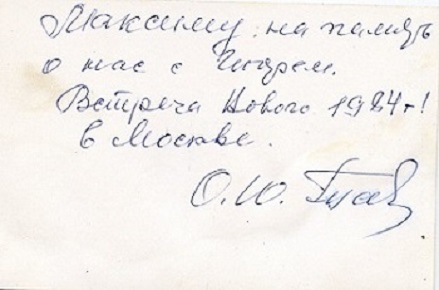 Максиму на память
о нас с Игорем.
Встреча Нового 1984 г!
в Москве.
О. Ю.